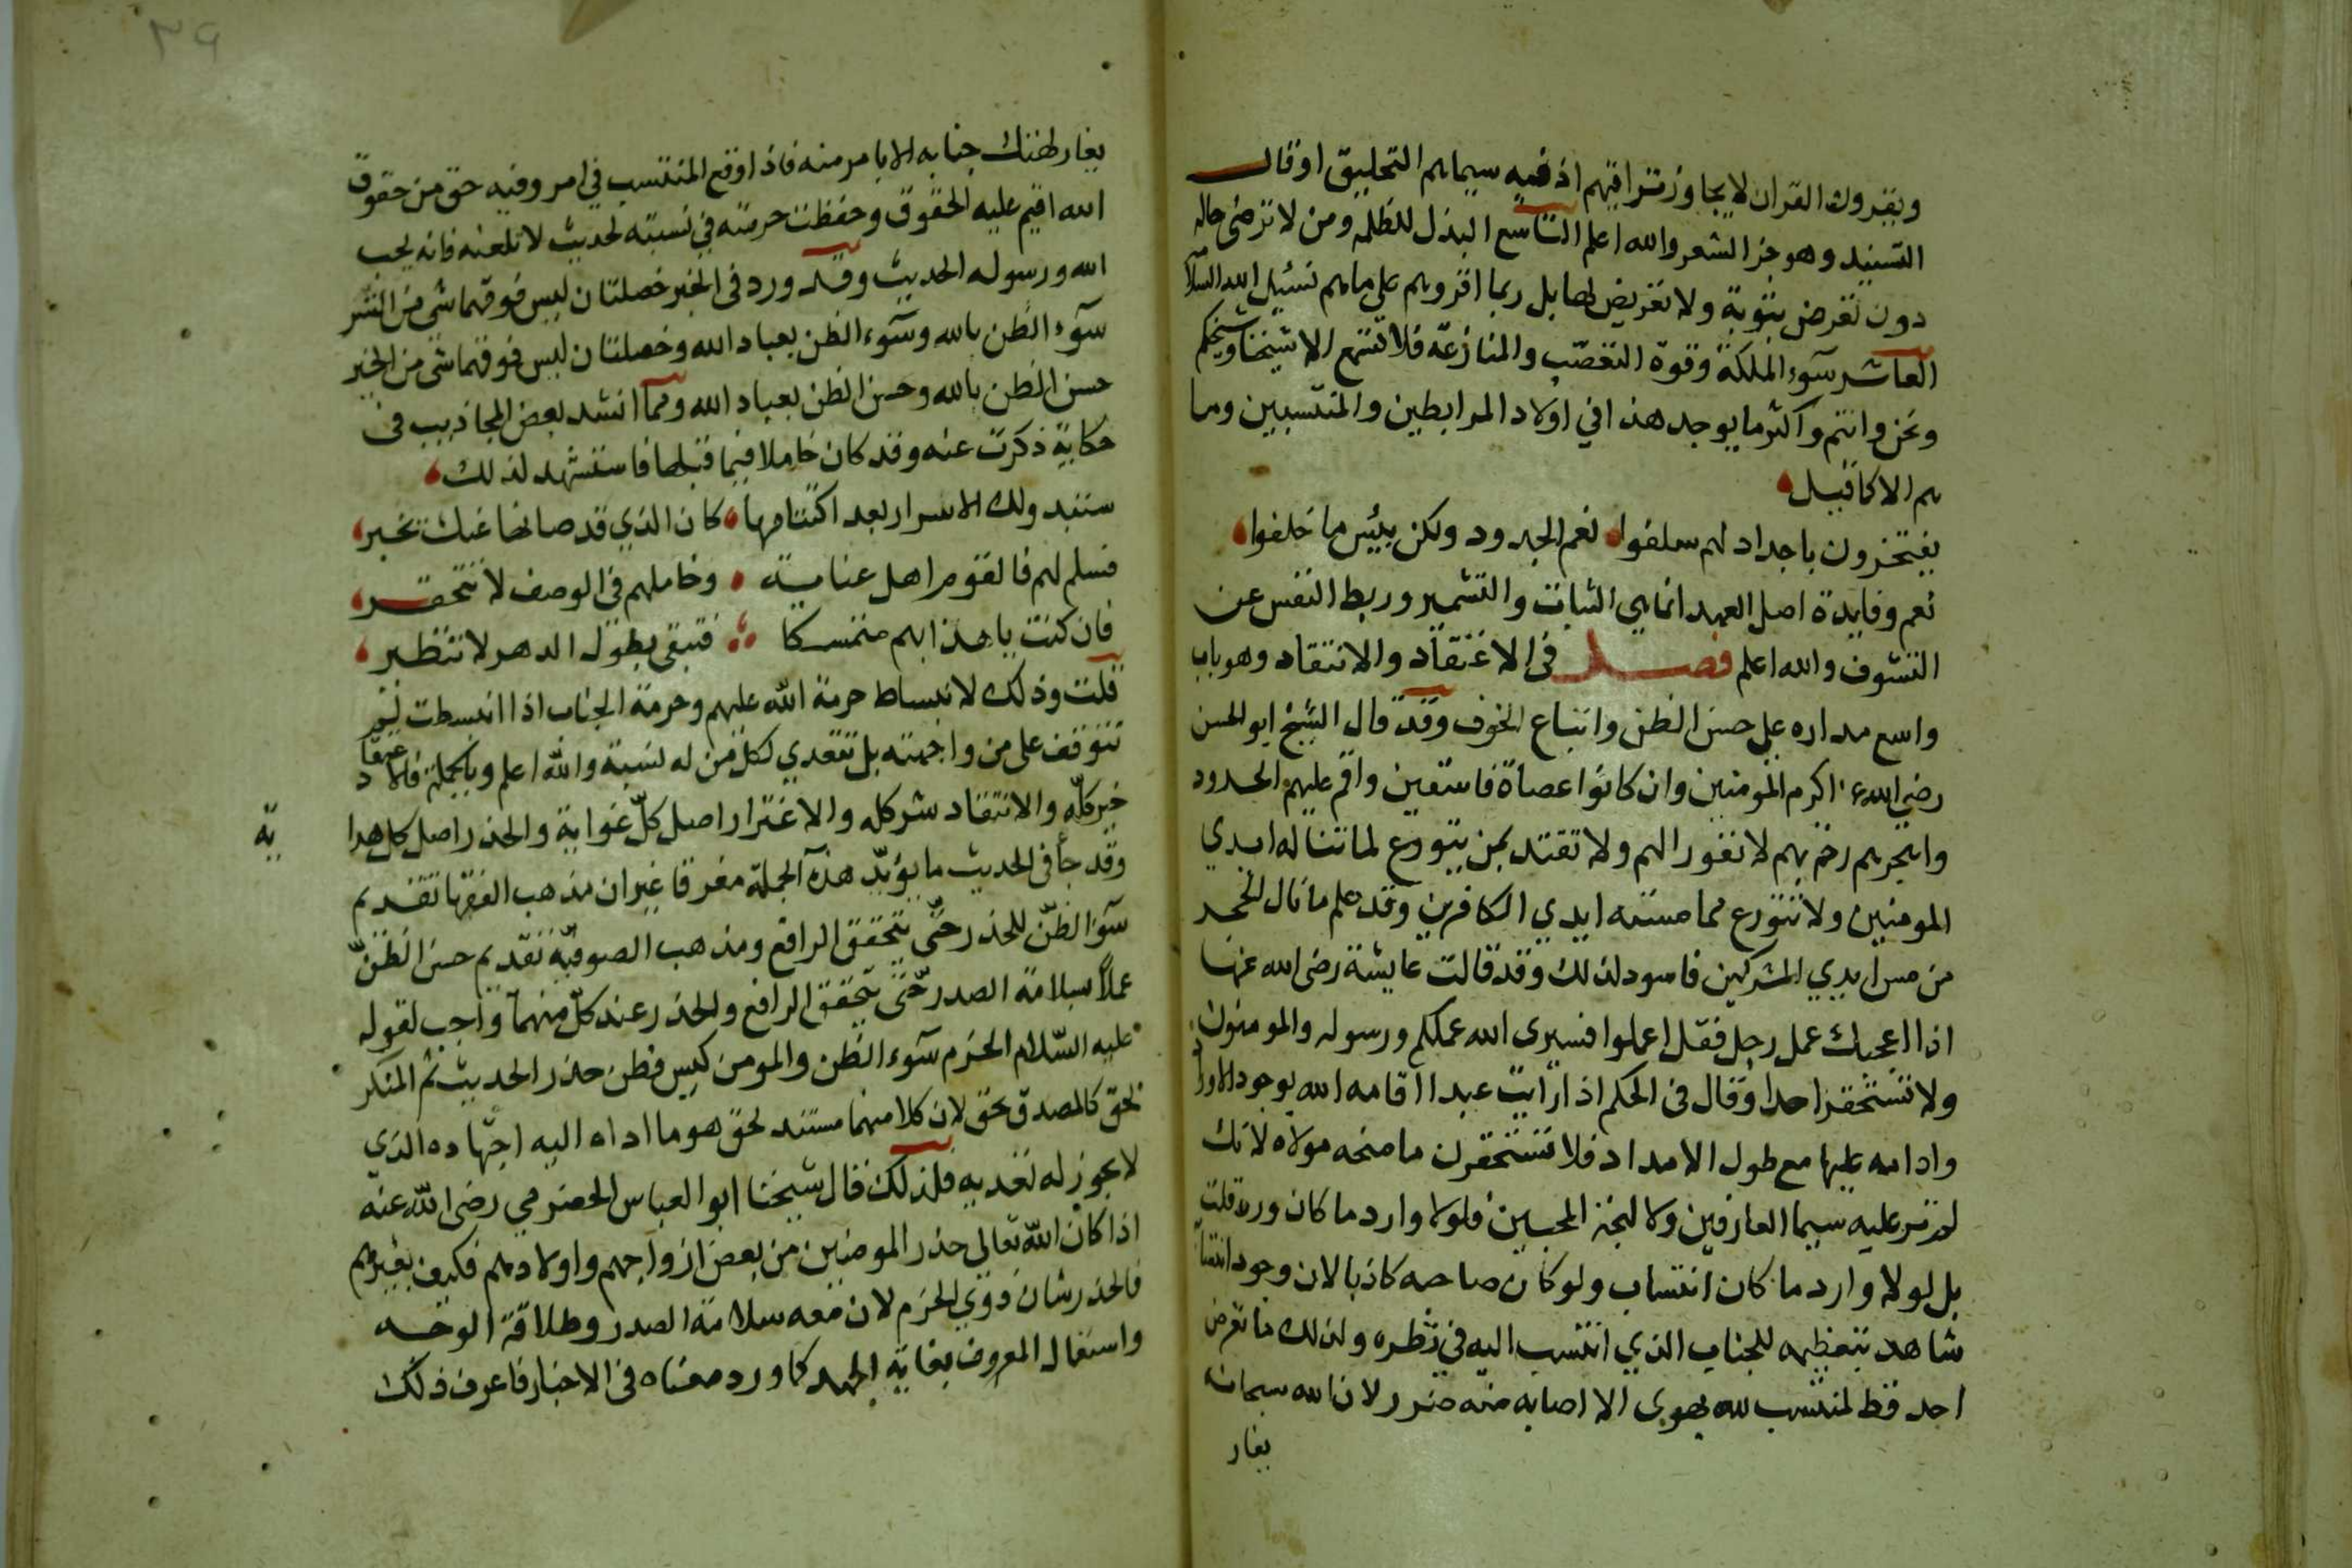 ويقرون القران لا يجاوز تراقيهم اذ فيه سيماهم التحليق او قال
التسبيد وهو جز الشعر والله اعلم التاسع البذل للظلمه ومن لا ترضى حاله
دون تعرض بتوبة ولا تعريض لها بل ربما اقروهم على ماهم نسئل الله السلامة
العاشر سوء الملكة وقوة التعصب والمنازعة فلا تسمع الا شيخنا وشيخكم
ونحن وانتم واكثر ما يوجد هذا في اولاد المرابطين والمنتسبين وما
هم الا كما قيل
يفتخرون باجداد لهم سلفوا نعم الجدود ولكن بئس ما خلفوا
نعم وفايدة اصل العهد انما هي الثبات والتشمير وربط النفس عن
التشوف والله اعلم فصل في الاعتقاد والانتقاد وهو باب
واسع مداره على حسن الظن واتباع الخوف وقد قال الشيخ ابو الحسن
رضي الله عنه اكرم المومنين وان كانوا عصاة فاسقين واقم عليهم الحدود
واهجرهم رحمة بهم لا نفورا لهم ولا تقتد بمن يتورع لما تناله ايدي
المومنين ولا يتورع مما مسته ايدي الكافرين وقد علم ما نال الحجر
من مس ايدي المشركين فاسود لذلك وقد قالت عايشة رضى الله عنها
اذا اعجبك عمل رجل فقل اعملوا فسيرى الله عملكم ورسوله والمومنون
ولا تستحقر احدا وقال في الحكم اذا رايت عبدا اقامه الله بوجود الاوراد
وادامه عليها مع طول الامداد فلا تستحقرن ما منحه مولاه لانك
لم تر عليه سيما العارفين ولا بهجة المحبين فلولا وارد ما كان ورد قلت
بل لولا وارد ما كان انتساب ولو كان صاحبه كاذبا لان وجود انتسابه
شاهد بتعظيمه للجناب الذي انتسب اليه في نظره ولذلك ما تعرض
احد قط لمنتسب لله بهوى الا اصابه منه ضرر لان الله سبحانه
يغار
٣٩
يغار لهتك جنابه الا بامر منه فاذا وقع المنتسب في امر وفيه حق من حقوق
الله اقيم عليه الحقوق وحفظت حرمته في نسبته لحديث لا تلعنه فانه يحب
الله ورسوله الحديث وقد ورد في الخبر خصلتان ليس فوقهما شى من الشر
سوء الظن بالله وسوء الظن بعباد الله وخصلتان ليس فوقهما شى من الخير
حسن الظن بالله وحسن الظن بعباد الله ومما انشد بعض المجاذيب في
حكاية ذكرت عنه وقد كان خاملا فيما قبلها فاستشهد لذلك
ستبدو لك الاسرار بعد اكتتامها كان الذي قد صانها عنك تخبر
فسلم لهم فالقوم اهل عناية وخاملهم في الوصف لا تحتقر
فان كنت ياهذا بهم متمسكا فتبقى بطول الدهر لا تتغير
قلت وذلك لانبساط حرمة الله عليهم وحرمة الجناب اذا انبسطت لم
تتوقف على من واجهته بل تتعدي لكل من له نسبة والله اعلم وبالجملة فالاعتقاد
خير كله والانتقاد شر كله والاغترار اصل كل غواية والحذر اصل كل هدا
ية
وقد جأ في الحديث ما يؤيد هذه الجملة مفرقا غير ان مذهب الفقها تقديم
سوء الظن للحذر حتى يتحقق الرافع ومذهب الصوفية تقديم حسن الظن
عملا بسلامة الصدر حتى يتحقق الرافع والحذر عند كل منهما واجب لقوله
عليه السلام الحزم سوء الظن والمومن كيس فطن حذر الحديث ثم المنكر
بحق كالمصدق بحق لان كلا منهما مستند لحق هو ما اداه اليه اجتهاده الذي
لا يجوز له تعديه فلذلك قال شيخنا ابو العباس الحضرمي رضى الله عنه
اذا كان الله تعالى حذر المومنين من بعض ازواجهم واولادهم فكيف بغيرهم
فالحذر شان ذوي الحزم لان معه سلامة الصدر وطلاقة الوجه
واستعمال المعروف بغاية الجهد كما ورد معناه في الاخبار فاعرف ذلك